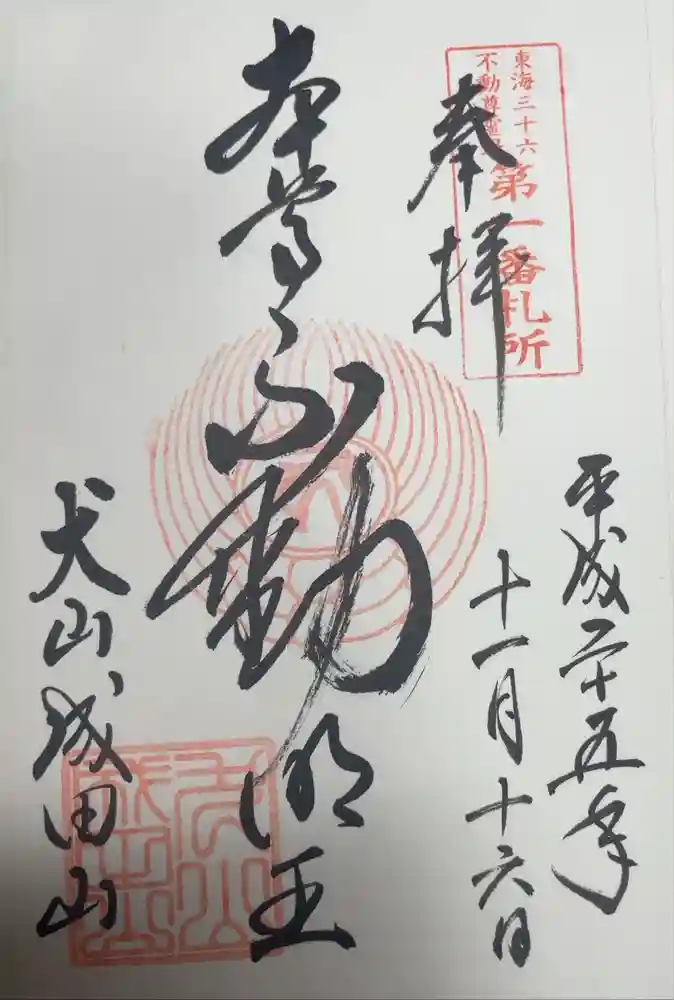 東海三十六
不動尊霊場
第一番札所
奉拝
平成二十五年
十一月十六日
本尊不動明王
犬山成田山